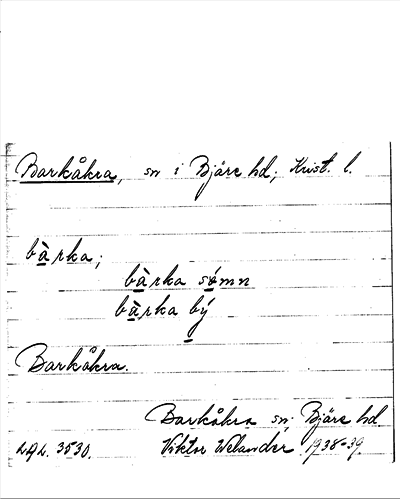 Barkåkra, sn i Bjäre hd, Krist. l.
bàrka;
bàrka sómn
bàrka bý
Barkåkra.
Barkåkra sn. Bjäre hd.
LAL. 3530. Viktor Welander 1938-39.